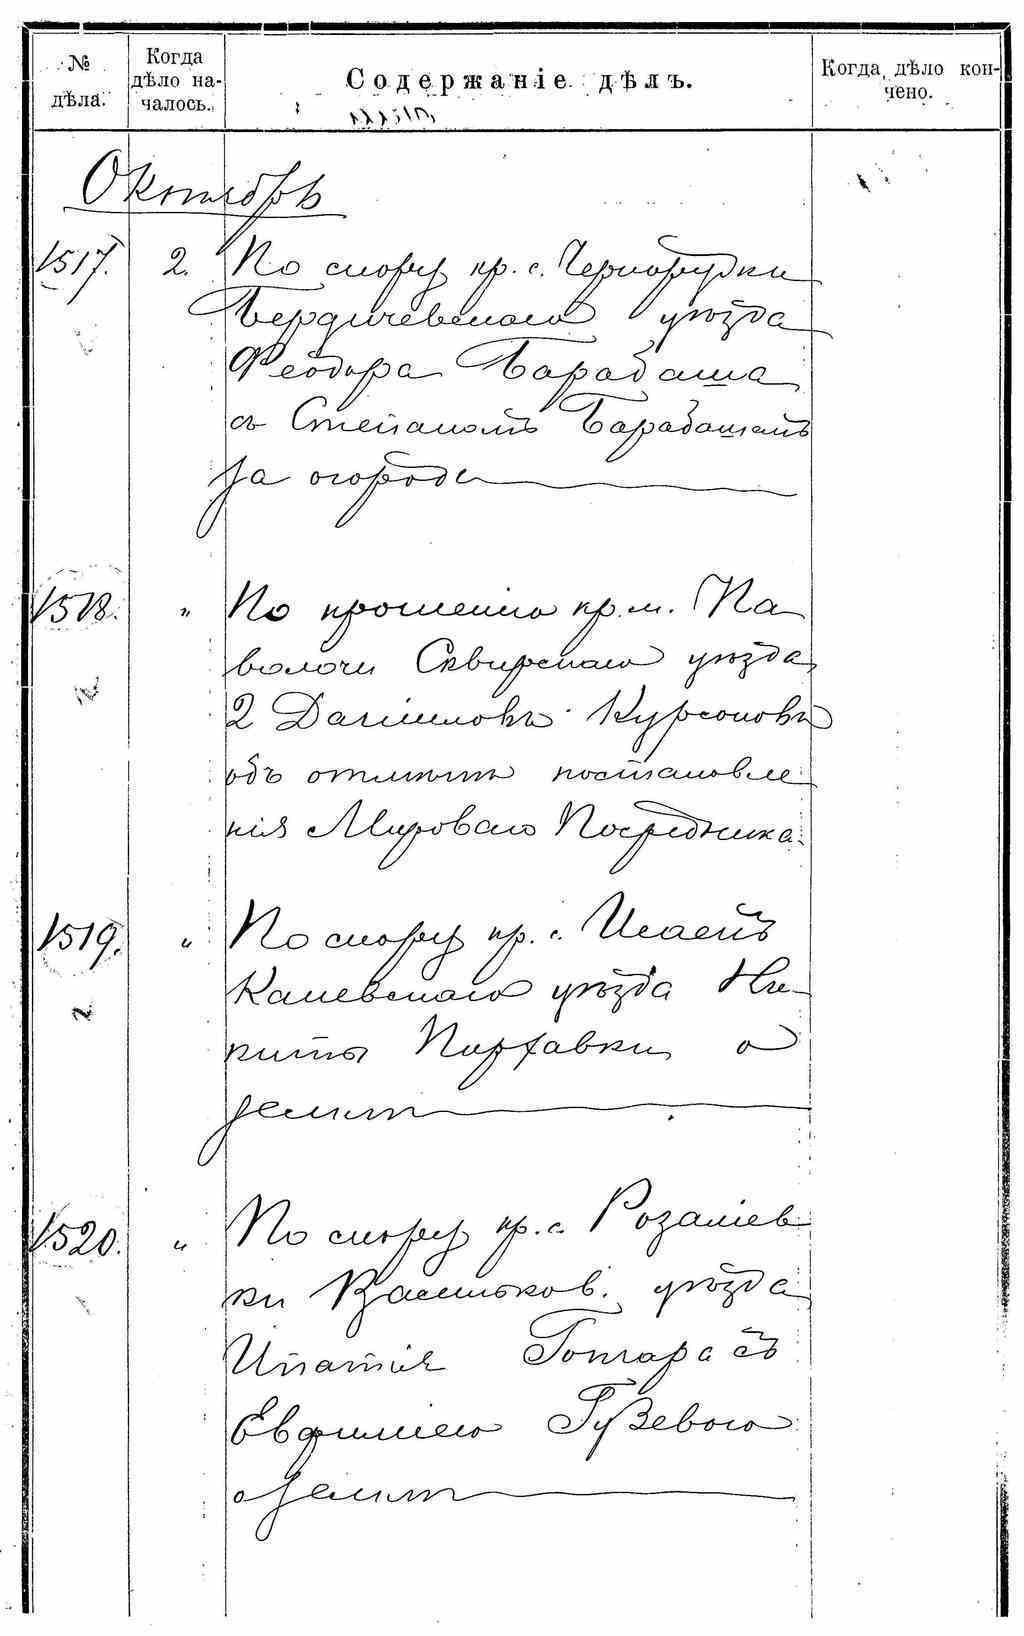 № дѣла.
Когда дѣло на-чалось.
Содержаніе дѣлъ.
Когда дѣло кон-чено.
Октябрь
1517. 2. По спору кр. с. Чернорудки
Бердичевскаго уѣзда
Феодора Барабаша
съ Степаномъ Барабашемъ
за огородъ
1518. " По прошенію кр. м. Па
волочи Сквирскаго уѣзда
2 Даніиловъ Курсоновъ
объ отмѣнѣ постановле
нія Мироваго Посредника.
1519. " По спору кр. с. Исаекъ
Каневскаго уѣзда Ни-
киты Пирхавки о
землѣ
1520. " По спору кр. с. Розаліев
ки Васильков. уѣзда
Ипатія Гончара съ
Евфиміею Гузевою
о землѣ